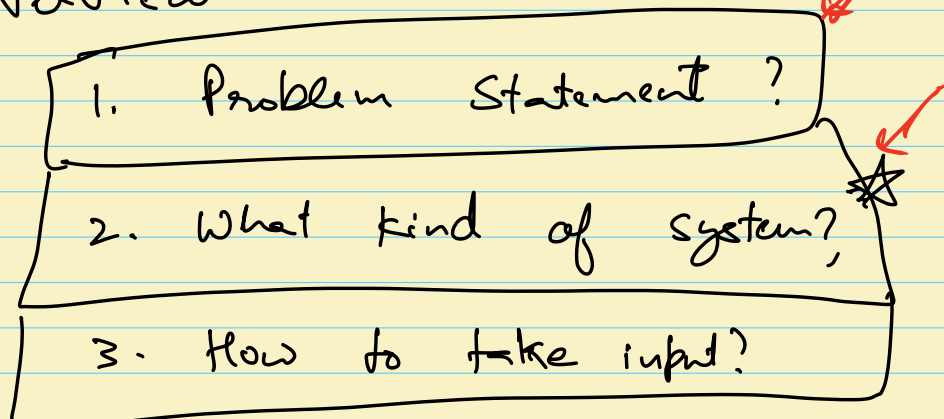 1. Problem Statement ?
2. What kind of system?
3. How to take input?